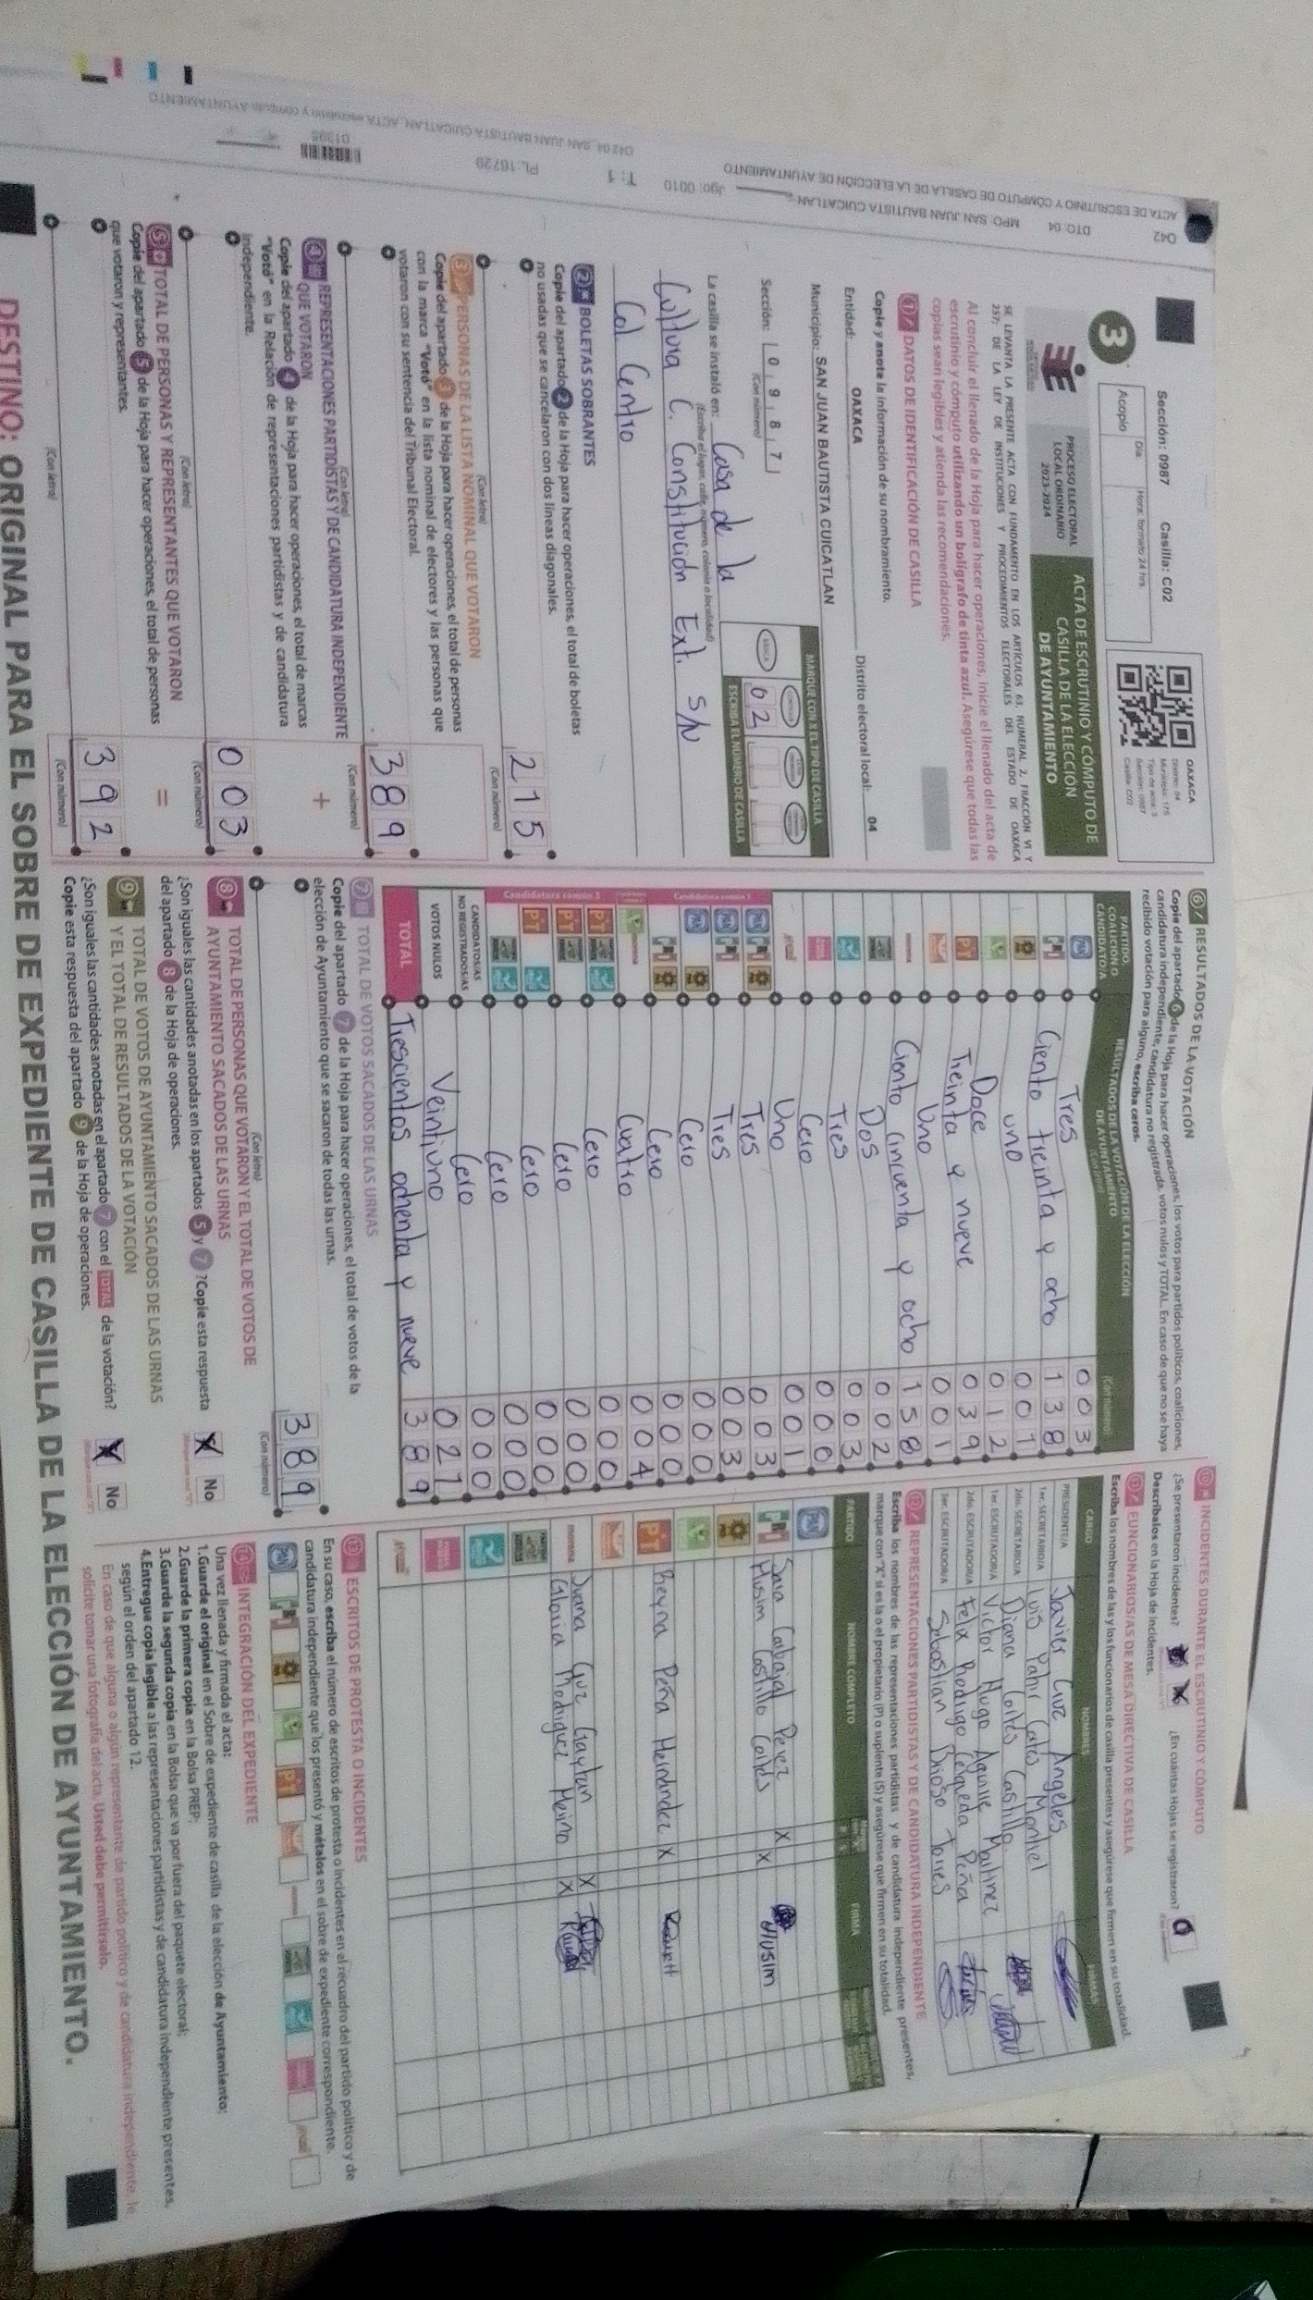 042
DTO: 04
MPO: SAN JUAN BAUTISTA CUICATLAN
Jgo: 0010
T: 1
PL: 16729
ACTA DE ESCRUTINIO Y CÓMPUTO DE CASILLA DE LA ELECCIÓN DE AYUNTAMIENTO
Sección: 0987 Casilla: C02
OAXACA
3
Acopio
Día
Hora: formato 24 hrs.
PROCESO ELECTORAL
LOCAL ORDINARIO
2023-2024
ACTA DE ESCRUTINIO Y CÓMPUTO DE
CASILLA DE LA ELECCIÓN
DE AYUNTAMIENTO
SE LEVANTA LA PRESENTE ACTA CON FUNDAMENTO EN LOS ARTÍCULOS 63, NUMERAL 2, FRACCIÓN VI Y
237; DE LA LEY DE INSTITUCIONES Y PROCEDIMIENTOS ELECTORALES DEL ESTADO DE OAXACA
Al concluir el llenado de la Hoja para hacer operaciones, inicie el llenado del acta de
escrutinio y cómputo utilizando un bolígrafo de tinta azul. Asegúrese que todas las
copias sean legibles y atienda las recomendaciones.
1 DATOS DE IDENTIFICACIÓN DE CASILLA
Copie y anote la información de su nombramiento.
Entidad: OAXACA Distrito electoral local: 04
Municipio: SAN JUAN BAUTISTA CUICATLAN
MARQUE CON X EL TIPO DE CASILLA
Sección: 0 9 8 7
(Con número)
02
ESCRIBA EL NÚMERO DE CASILLA
La casilla se instaló en: Casa de la
(Escriba el lugar, calle, número, colonia o localidad)
Cultura C. Constitución Ext. S/N
Col Centro
2 BOLETAS SOBRANTES
Copie del apartado 2 de la Hoja para hacer operaciones, el total de boletas
no usadas que se cancelaron con dos líneas diagonales.
215
(Con letra)
(Con número)
3 PERSONAS DE LA LISTA NOMINAL QUE VOTARON
Copie del apartado 3 de la Hoja para hacer operaciones, el total de personas
con la marca "Votó" en la lista nominal de electores y las personas que
votaron con su sentencia del Tribunal Electoral.
389
(Con letra)
(Con número)
4 REPRESENTACIONES PARTIDISTAS Y DE CANDIDATURA INDEPENDIENTE
QUE VOTARON
+
Copie del apartado 4 de la Hoja para hacer operaciones, el total de marcas
"Votó" en la Relación de representaciones partidistas y de candidatura
independiente.
003
(Con letra)
(Con número)
5 TOTAL DE PERSONAS Y REPRESENTANTES QUE VOTARON
=
Copie del apartado 5 de la Hoja para hacer operaciones, el total de personas
que votaron y representantes.
392
(Con letra)
(Con número)
6 RESULTADOS DE LA VOTACIÓN
Copie del apartado 6 de la Hoja para hacer operaciones, los votos para partidos políticos, coaliciones,
candidatura independiente, candidatura no registrada, votos nulos y TOTAL. En caso de que no se haya
recibido votación para alguno, escriba ceros.
PARTIDO
COALICIÓN O
CANDIDATO/A
RESULTADOS DE LA VOTACIÓN DE LA ELECCIÓN
DE AYUNTAMIENTO
(Con número)
Tres 003
Ciento treinta y ocho 138
uno 001
Doce 012
Treinta y nueve 039
Uno 001
Ciento cincuenta y ocho 158
Dos 002
Tres 003
Cero 000
Uno 001
Tres 003
Tres 003
Cero 000
Cero 000
Cuatro 004
Cero 000
Cero 000
Cero 000
Cero 000
CANDIDATOS/AS
NO REGISTRADOS/AS
Cero 000
VOTOS NULOS Veintiuno 021
TOTAL Trescientos ochenta y nueve 389
7 TOTAL DE VOTOS SACADOS DE LAS URNAS
Copie del apartado 7 de la Hoja para hacer operaciones, el total de votos de la
elección de Ayuntamiento que se sacaron de todas las urnas.
389
(Con letra)
(Con número)
8 TOTAL DE PERSONAS QUE VOTARON Y EL TOTAL DE VOTOS DE
AYUNTAMIENTO SACADOS DE LAS URNAS
¿Son iguales las cantidades anotadas en los apartados 5 y 7 ? Copie esta respuesta
del apartado 8 de la Hoja de operaciones.
No
9 TOTAL DE VOTOS DE AYUNTAMIENTO SACADOS DE LAS URNAS
Y EL TOTAL DE RESULTADOS DE LA VOTACIÓN
¿Son iguales las cantidades anotadas en el apartado 7 con el TOTAL de la votación?
Copie esta respuesta del apartado 9 de la Hoja de operaciones.
No
10 INCIDENTES DURANTE EL ESCRUTINIO Y CÓMPUTO
¿Se presentaron incidentes?
¿En cuántas Hojas se registraron? 0
Descríbalos en la Hoja de incidentes.
11 FUNCIONARIOS/AS DE MESA DIRECTIVA DE CASILLA
Escriba los nombres de las y los funcionarios de casilla presentes y asegúrese que firmen en su totalidad.
CARGO NOMBRES FIRMAS
PRESIDENTE/A Javier Cruz Angeles
1er. SECRETARIO/A Luis Montiel
2do. SECRETARIO/A Diana Castillo
1er. ESCRUTADOR/A Victor Hugo Aguille Martinez
2do. ESCRUTADOR/A Felix Rodrigo Cerqueda Peña
3er. ESCRUTADOR/A Sabastian Torres
12 REPRESENTACIONES PARTIDISTAS Y DE CANDIDATURA INDEPENDIENTE
Escriba los nombres de las representaciones partidistas y de candidatura independiente presentes,
marque con "X" si es la o el propietario (P) o suplente (S) y asegúrese que firmen en su totalidad.
PARTIDO NOMBRE COMPLETO FIRMA
Sara Perez X
Castillo X
Reyna Peña Hernandez X
Juana Cruz Gaytan X
Gloria Rodriguez X
13 ESCRITOS DE PROTESTA O INCIDENTES
En su caso, escriba el número de escritos de protesta o incidentes en el recuadro del partido político y de
candidatura independiente que los presentó y métalos en el sobre de expediente correspondiente.
14 INTEGRACIÓN DEL EXPEDIENTE
Una vez llenada y firmada el acta:
1.Guarde el original en el Sobre de expediente de casilla de la elección de Ayuntamiento;
2.Guarde la primera copia en la Bolsa PREP;
3.Guarde la segunda copia en la Bolsa que va por fuera del paquete electoral;
4.Entregue copia legible a las representaciones partidistas y de candidatura independiente presentes,
según el orden del apartado 12.
En caso de que alguna o algún representante de partido político y de candidatura independiente, le
solicite tomar una fotografía del acta. Usted debe permitírselo.
DESTINO: ORIGINAL PARA EL SOBRE DE EXPEDIENTE DE CASILLA DE LA ELECCIÓN DE AYUNTAMIENTO.